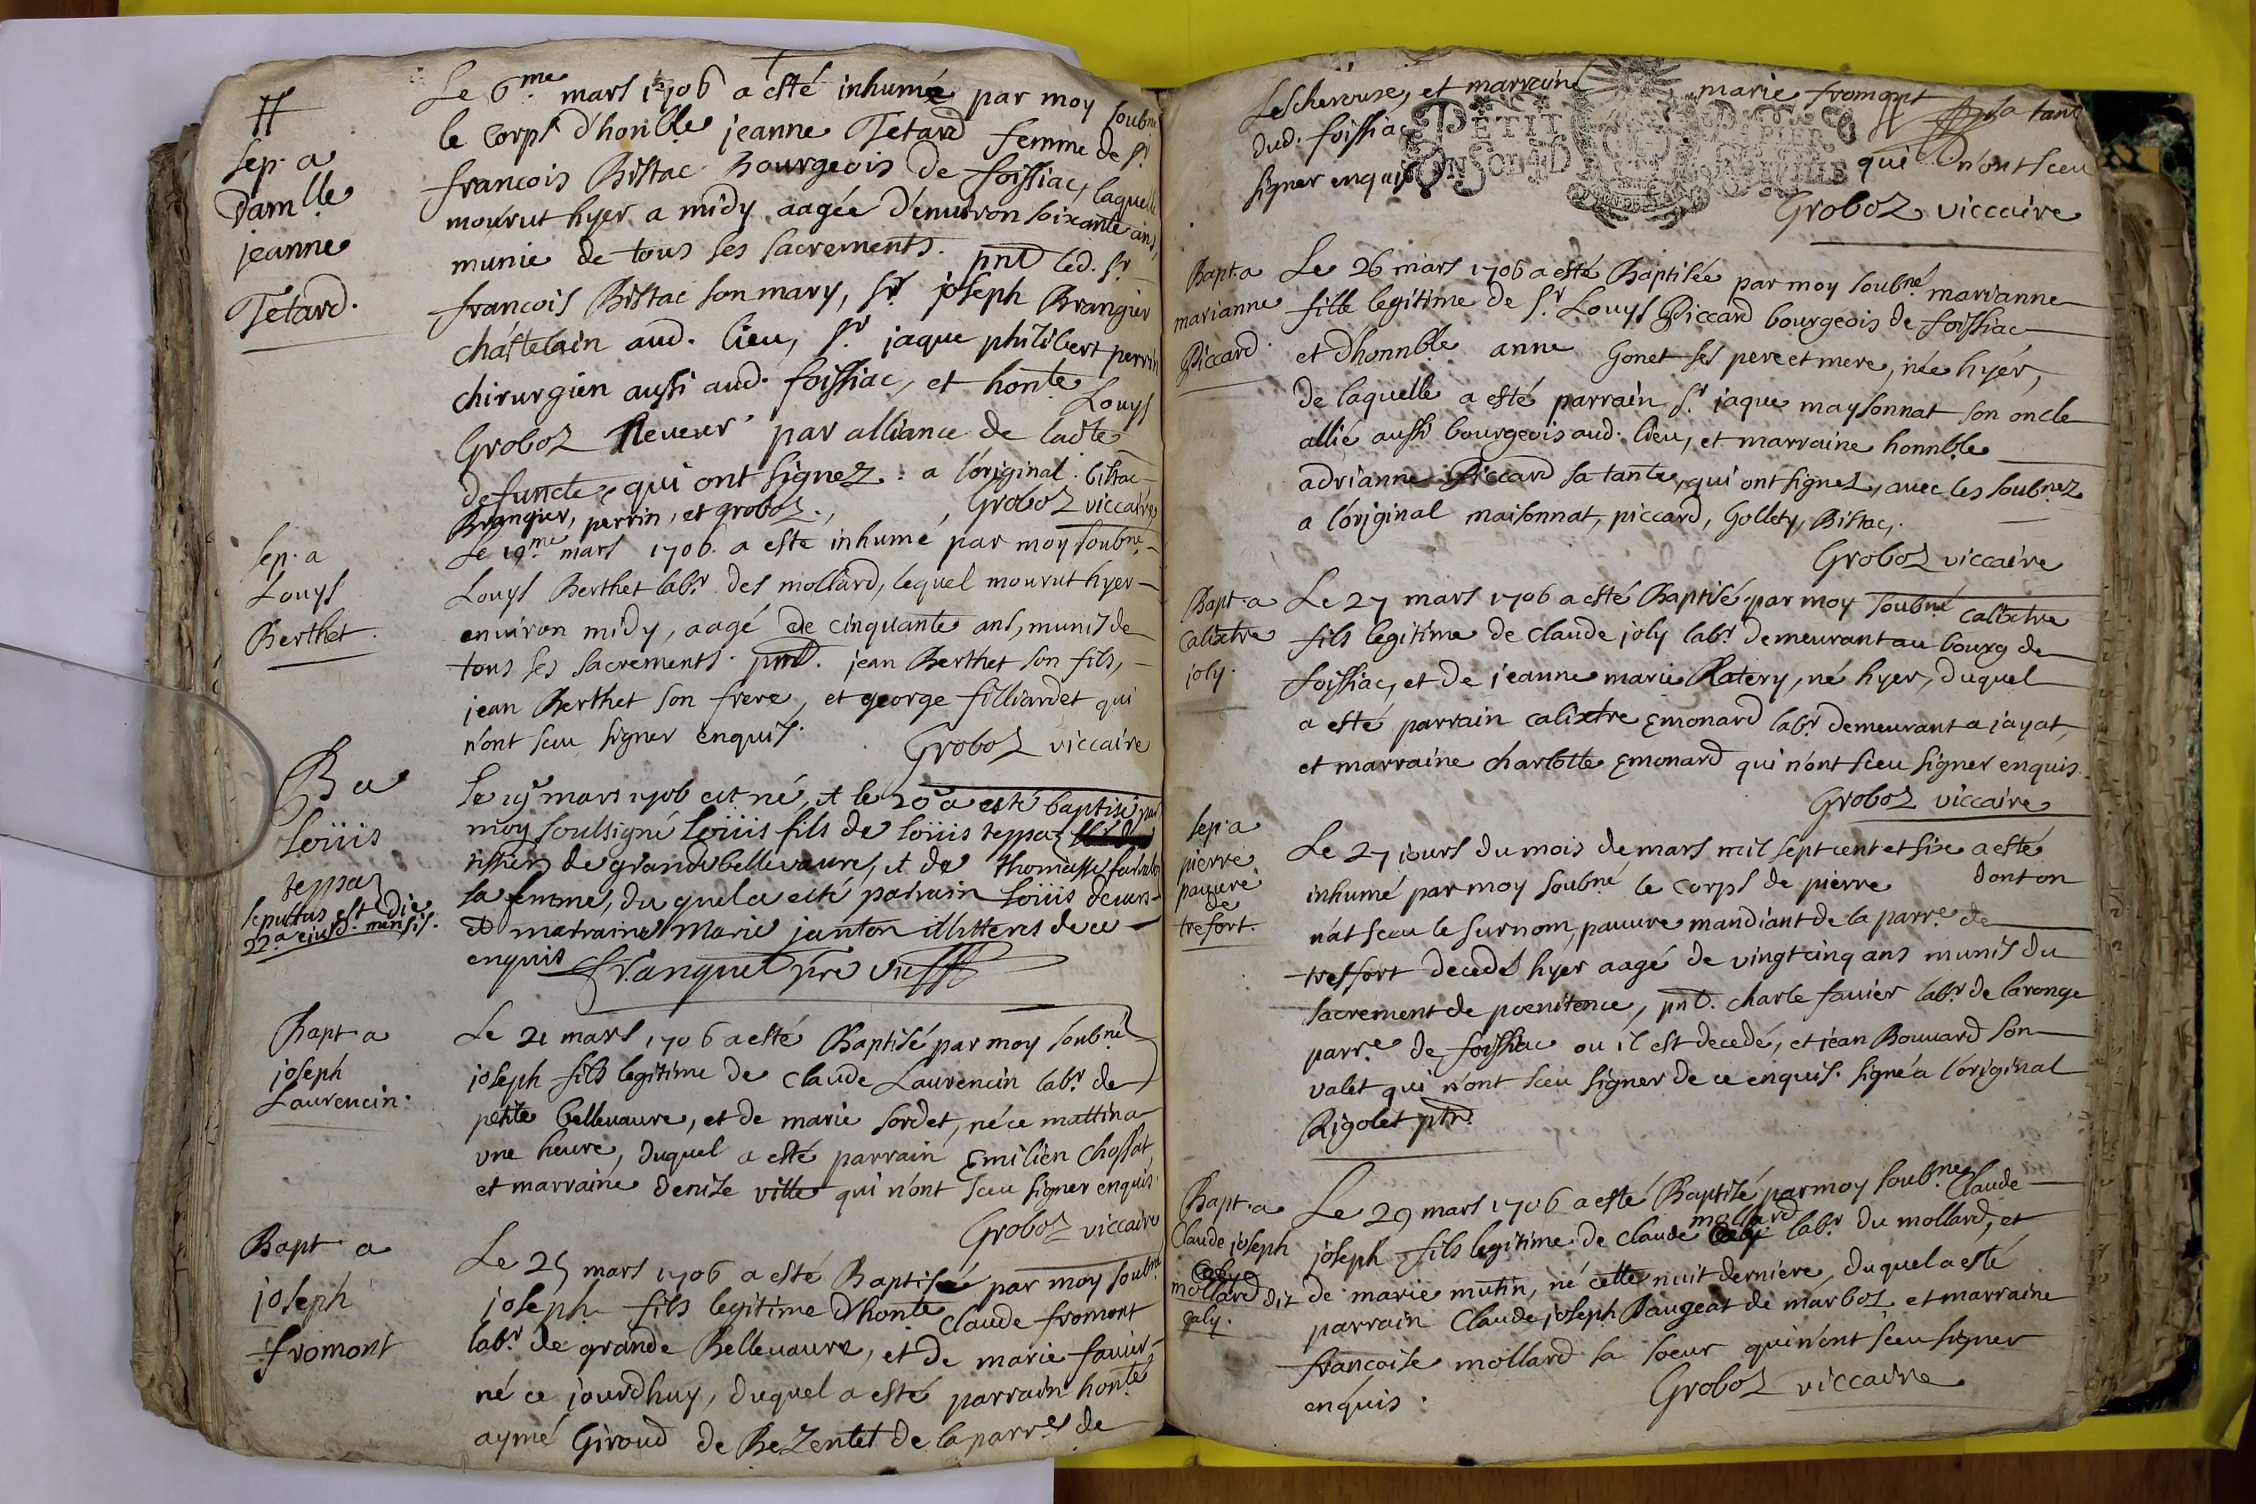 Sep. a
Dam.lle
jeanne
Tetard.
Le 6.me mars 1706 a esté inhumé par moy soubné
le corps d'hon.ble jeanne Tetard femme de Sr
francois Bistac Bourgeois de foissiac, laquelle
mourut hyer a midy aagée d'enuiron soixante ans,
munie de tous ses sacrements. pnt led. Sr
francois Bistac son mary, Sr joseph Brangier
châstelain aud. lieu, Sr jaque philibert perrin
chirurgien aussi aud. foissiac, et honte Louys
Groboz neueur par alliance de ladte
defuncte qui ont signez : a l'original. bistac
Brangier, perrin, et groboz., Groboz viccaire
Sep. a
Louys
Berthet.
Le 19.me mars 1706. a esté inhumé par moy soubné
Louys Berthet labr. des mollard, lequel mourut hyer
enuiron midy, aagé de cinquante ans, munis de
tous ses sacrements. pnt. jean Berthet son fils,
jean Berthet son frere, et george filliardet qui
n'ont sceu signer enquis.
Groboz viccaire
B a
Loüis
teppaz
sepultus est die
22.a ejusd. mensis.
Le 19 mars 1706 est né, et le 20e a esté baptisé par
moy soulsigné Loüis fils de Loüis teppaz
de grande belleuaure, et de thomasse
sa femme, du quel a esté parrain Loüis
et marraine Marie janton illitteres de ce
enquis
Bapt. a
joseph
Laurencin.
Le 21 mars 1706 a esté Baptisé par moy soubné
joseph fils legitime de claude Laurencin labr. de
petite belleuaure, et de marie sordet, né ce mattin a
vne heure, duquel a esté parrain Emilien chossat,
et marraine denise ville qui n'ont sceu signer enquis.
Groboz viccaire
Bapt a
joseph
fromont
Le 25 mars 1706 a esté Baptisé par moy soubné
joseph fils legitime d'honte claude fromont
labr. de grande Belleuaure, et de marie fauier
né ce jourdhuy, duquel a esté parrain honte
aymé Giroud de Bezentet de la parr.e de
Lescheroux, et marraine marie fromont sa tante
dud. foissiac qui n'ont sceu
signer enquis
PETIT PAPIER
Groboz viccaire
Bapt. a
marianne
Piccard.
Le 26 mars 1706 a esté Baptisée par moy soubné marianne
fille legitime de Sr. Louys Piccard bourgeois de foissiac
et d'honnble anne Gonet ses pere et mere, née hyer,
de laquelle a esté parrain Sr. jaque maysonnat son oncle
allié aussi bourgeois aud. lieu, et marraine honnble
adrianne Piccard sa tante, qui ont signez, auec les soubnez
a l'original maisonnat, piccard, Gollety, Bistac,.
Groboz viccaire
Bapt. a
calixtre
joly.
Le 27 mars 1706 a esté Baptisé par moy soubné calixtre
fils legitime de claude joly labr. demeurant au bourg de
foissiac, et de jeanne marie Ratery, né hyer, duquel
a esté parrain calixtre Emonard labr. demeurant a jayat,
et marraine charlotte Emonard qui n'ont sceu signer enquis.
Groboz viccaire
Sep. a
pierre
pauure
de
trefort.
Le 27 jours du mois de mars mil sept cent et six a esté
inhumé par moy soubné le corps de pierre dont on
n'at sceu le surnom, pauure mandiant de la parr.e de
treffort decedé hyer aagé de vingt cinq ans munis du
sacrement de poenitence, pnt. charle fauier labr. de laronge
parr.e de foissiac ou il est decedé, et jean Bouuard son
valet qui n'ont sceu signer de ce enquis. signé a l'original
Rigolet ptre
Bapt. a
Claude joseph
mollard dit
joly.
Le 29 mars 1706 a esté Baptisé par moy soub.né Claude
joseph fils legitime de claude mollard labr. du mollard, et
de marie mutin, né cette nuit derniere, duquel a esté
parrain Claude joseph Daugeat de marboz, et marraine
francoise mollard sa soeur qui n'ont sceu signer
enquis.
Groboz viccaire